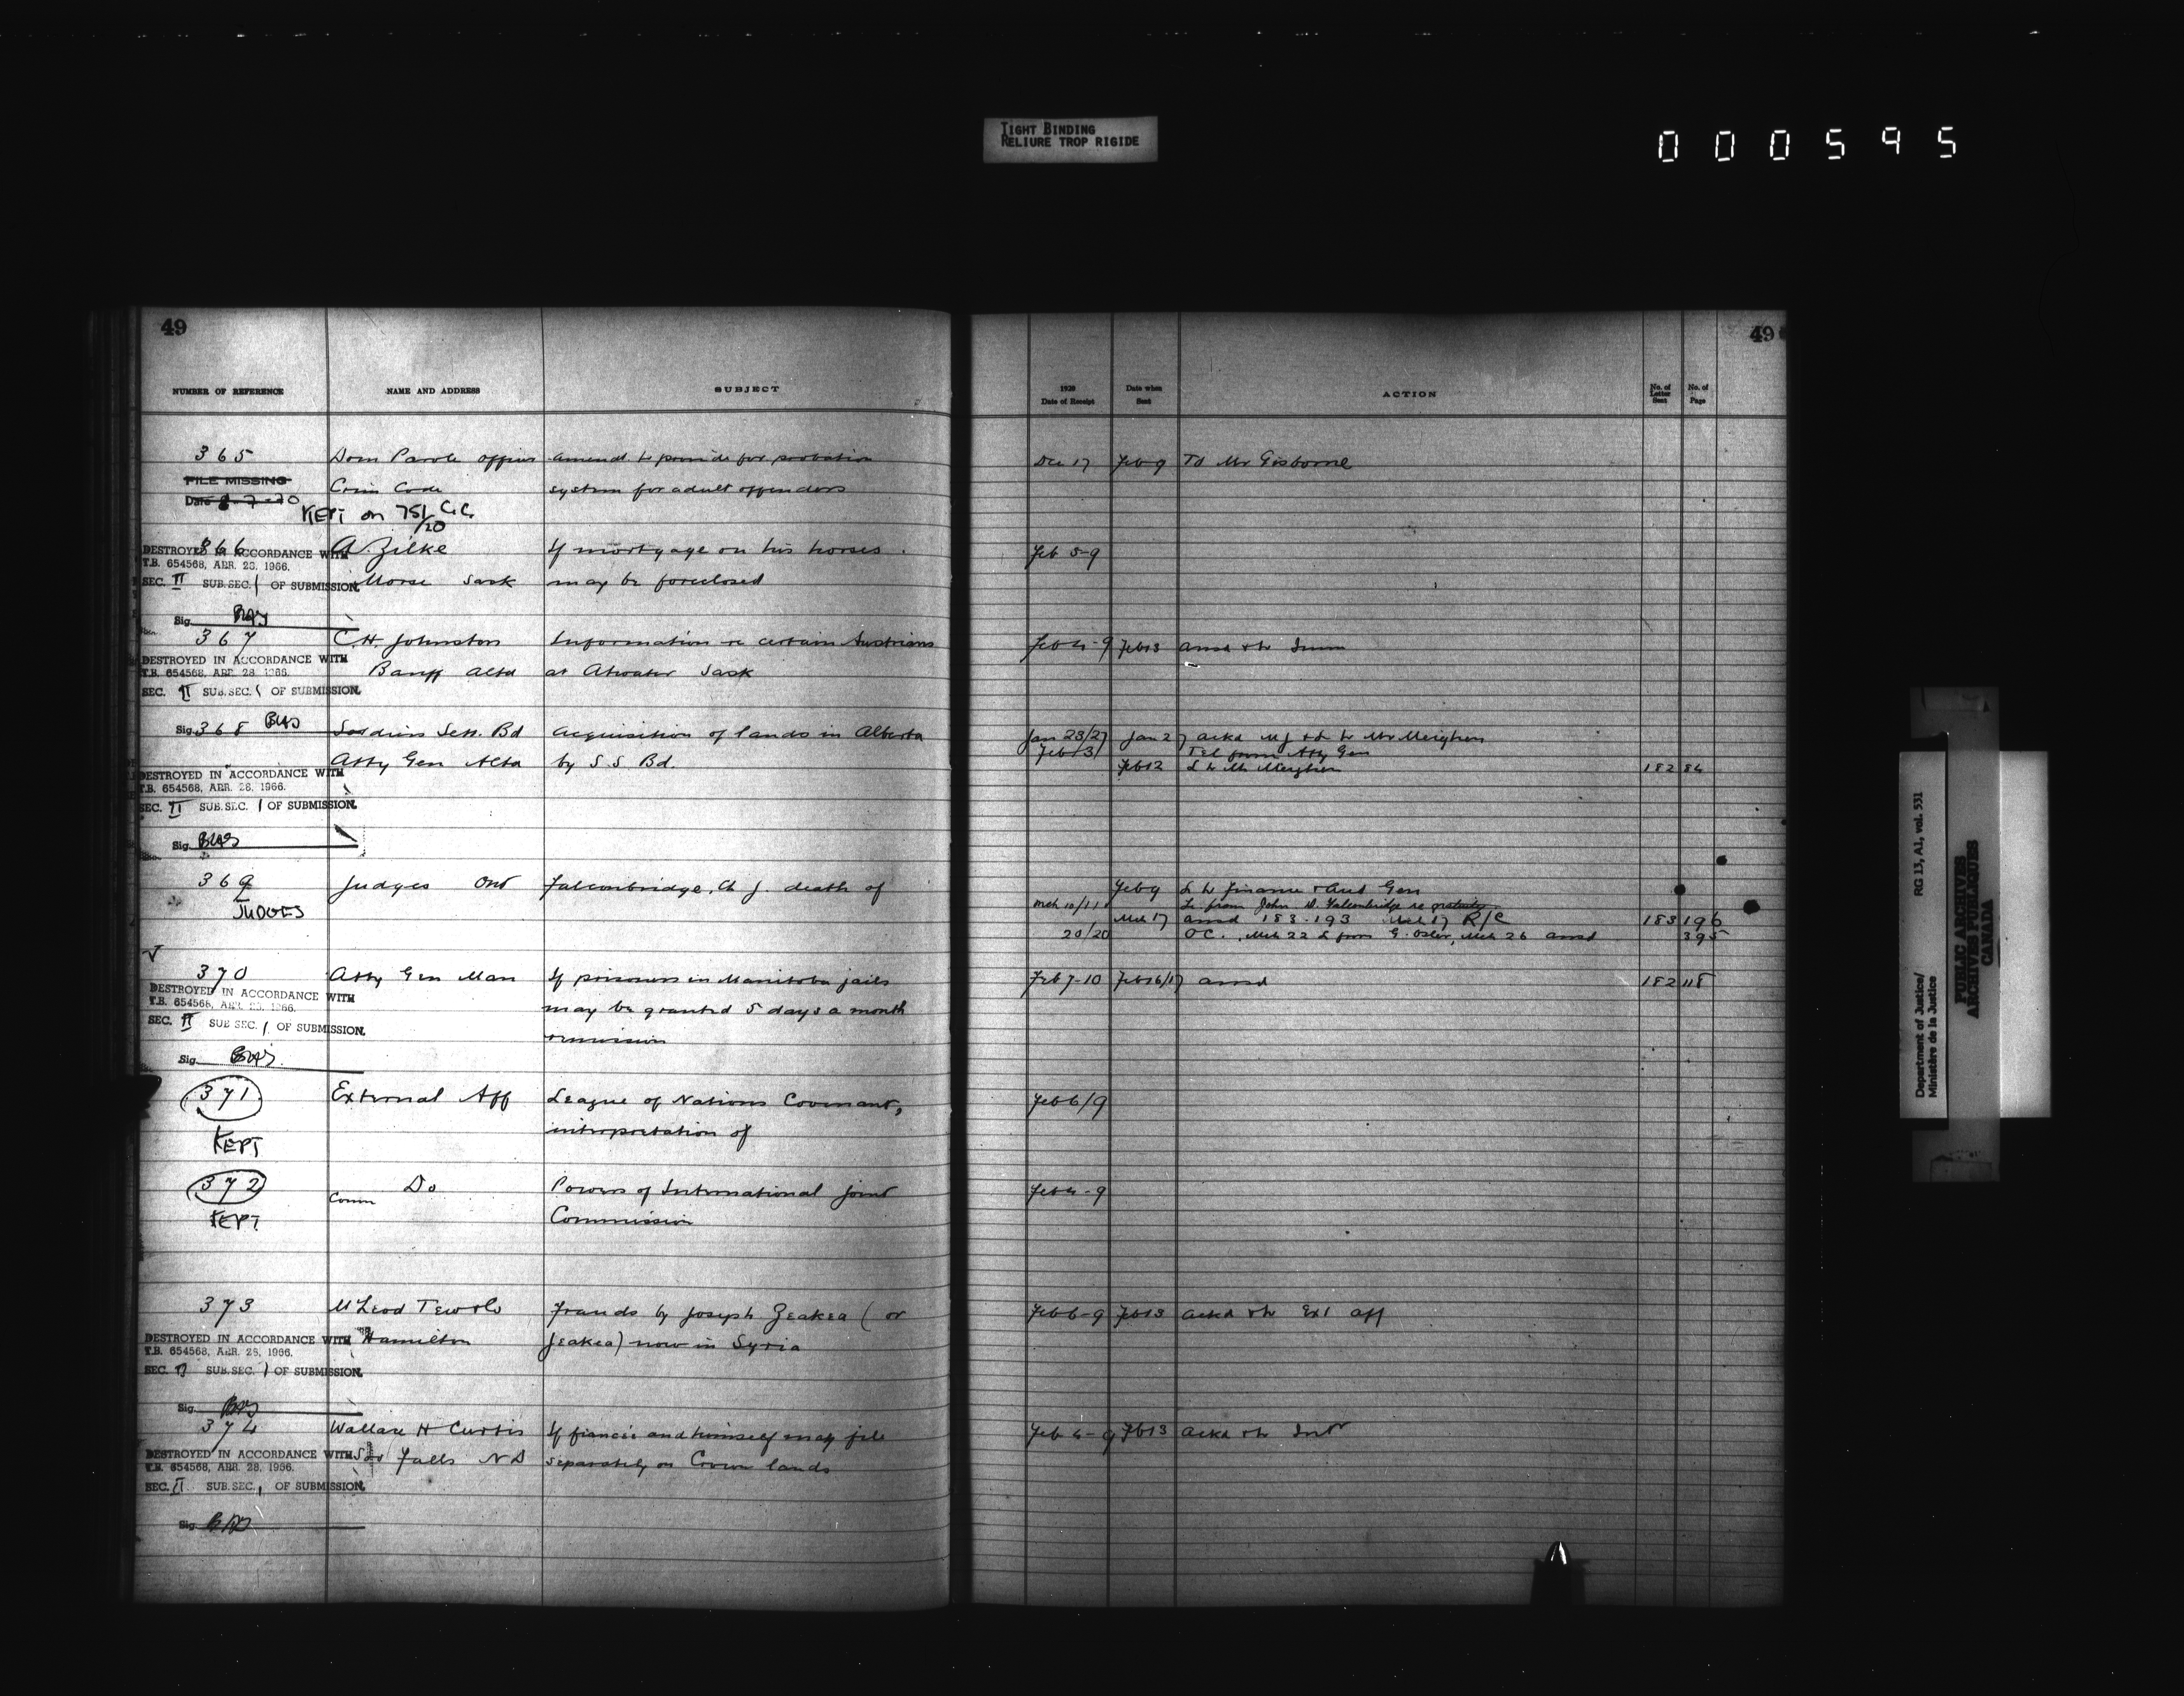 TIGHT BINDING
RELIURE TROP RIGIDE
000595
49
NUMBER OF REFERENCE NAME AND ADDRESS SUBJECT
365 Dom Parole Officer amend. to provide for probation
FILE MISSING Crim Code system for adult offenders
Date 8-7-70
KEPT on 751/20 C.C.
366 A. Zilke If mortgage on his horses
DESTROYED IN ACCORDANCE WITH
T.B. 654568, APR. 28, 1966.
SEC. II SUB.SEC. 1 OF SUBMISSION. Morse Sask may be foreclosed
Sig.
367 C.H. Johnston Information re certain Austrians
DESTROYED IN ACCORDANCE WITH
T.B. 654568, APR. 28, 1966. Banff Alta at Atwater Sask
SEC. II SUB.SEC. 1 OF SUBMISSION.
Sig. 368 Soldiers Sett. Bd Acquisition of lands in Alberta
Atty Gen Alta by S.S. Bd.
DESTROYED IN ACCORDANCE WITH
T.B. 654568, APR. 28, 1966.
SEC. II SUB.SEC. 1 OF SUBMISSION.
Sig.
369 Judges Ont Falconbridge, Ch J. death of
JUDGES
370 Atty Gen Man If prisoners in Manitoba jails
DESTROYED IN ACCORDANCE WITH
T.B. 654568, APR. 28, 1966. may be granted 5 days a month
SEC. II SUB SEC. 1 OF SUBMISSION. remission
Sig.
371 External Aff League of Nations Covenant,
KEPT interpretation of
372 Do Powers of International Joint
Comm
KEPT Commission
373 McLeod Frauds by Joseph Zeakea (or
DESTROYED IN ACCORDANCE WITH Hamilton Jeakea) now in Syria
T.B. 654568, APR. 28, 1966.
SEC. II SUB.SEC. 1 OF SUBMISSION.
Sig.
374 Wallace H Curtis If fiancée and himself may file
DESTROYED IN ACCORDANCE WITH Falls N D separately on Crown lands
T.B. 654568, APR. 28, 1966.
SEC. II SUB.SEC. 1 OF SUBMISSION.
Sig.
49
1920 Date of Receipt Date when Sent ACTION No. of Letter Sent No. of Page
Dec 17 Feb 9 To Mr Gisborne
Feb 5-9
Feb 4-9 Feb 13 ansd & to Imm
Jan 23/27 Jan 27 ackd MJ & L to Mr Meighen
Feb 3/ Tel from Atty Gen
Feb 12 L to Mr Meighen 182 84
Feb 9 L to Finance & Aud Gen
Mch 10/11 L from John D. Falconbridge re gratuity
Mch 17 ansd 183-193 Mch 17 R/C 183 196
20/20 OC. Mch 22 L from G. Osler, Mch 26 ansd 395
Feb 7-10 Feb 16/17 ansd 182 118
Feb 6/9
Feb 4-9
Feb 6-9 Feb 13 ackd & to Ext Aff
Feb 6-9 Feb 13 ackd & to Intr
Department of Justice/ RG 13, A1, vol. 531
Ministère de la Justice
PUBLIC ARCHIVES
ARCHIVES PUBLIQUES
CANADA